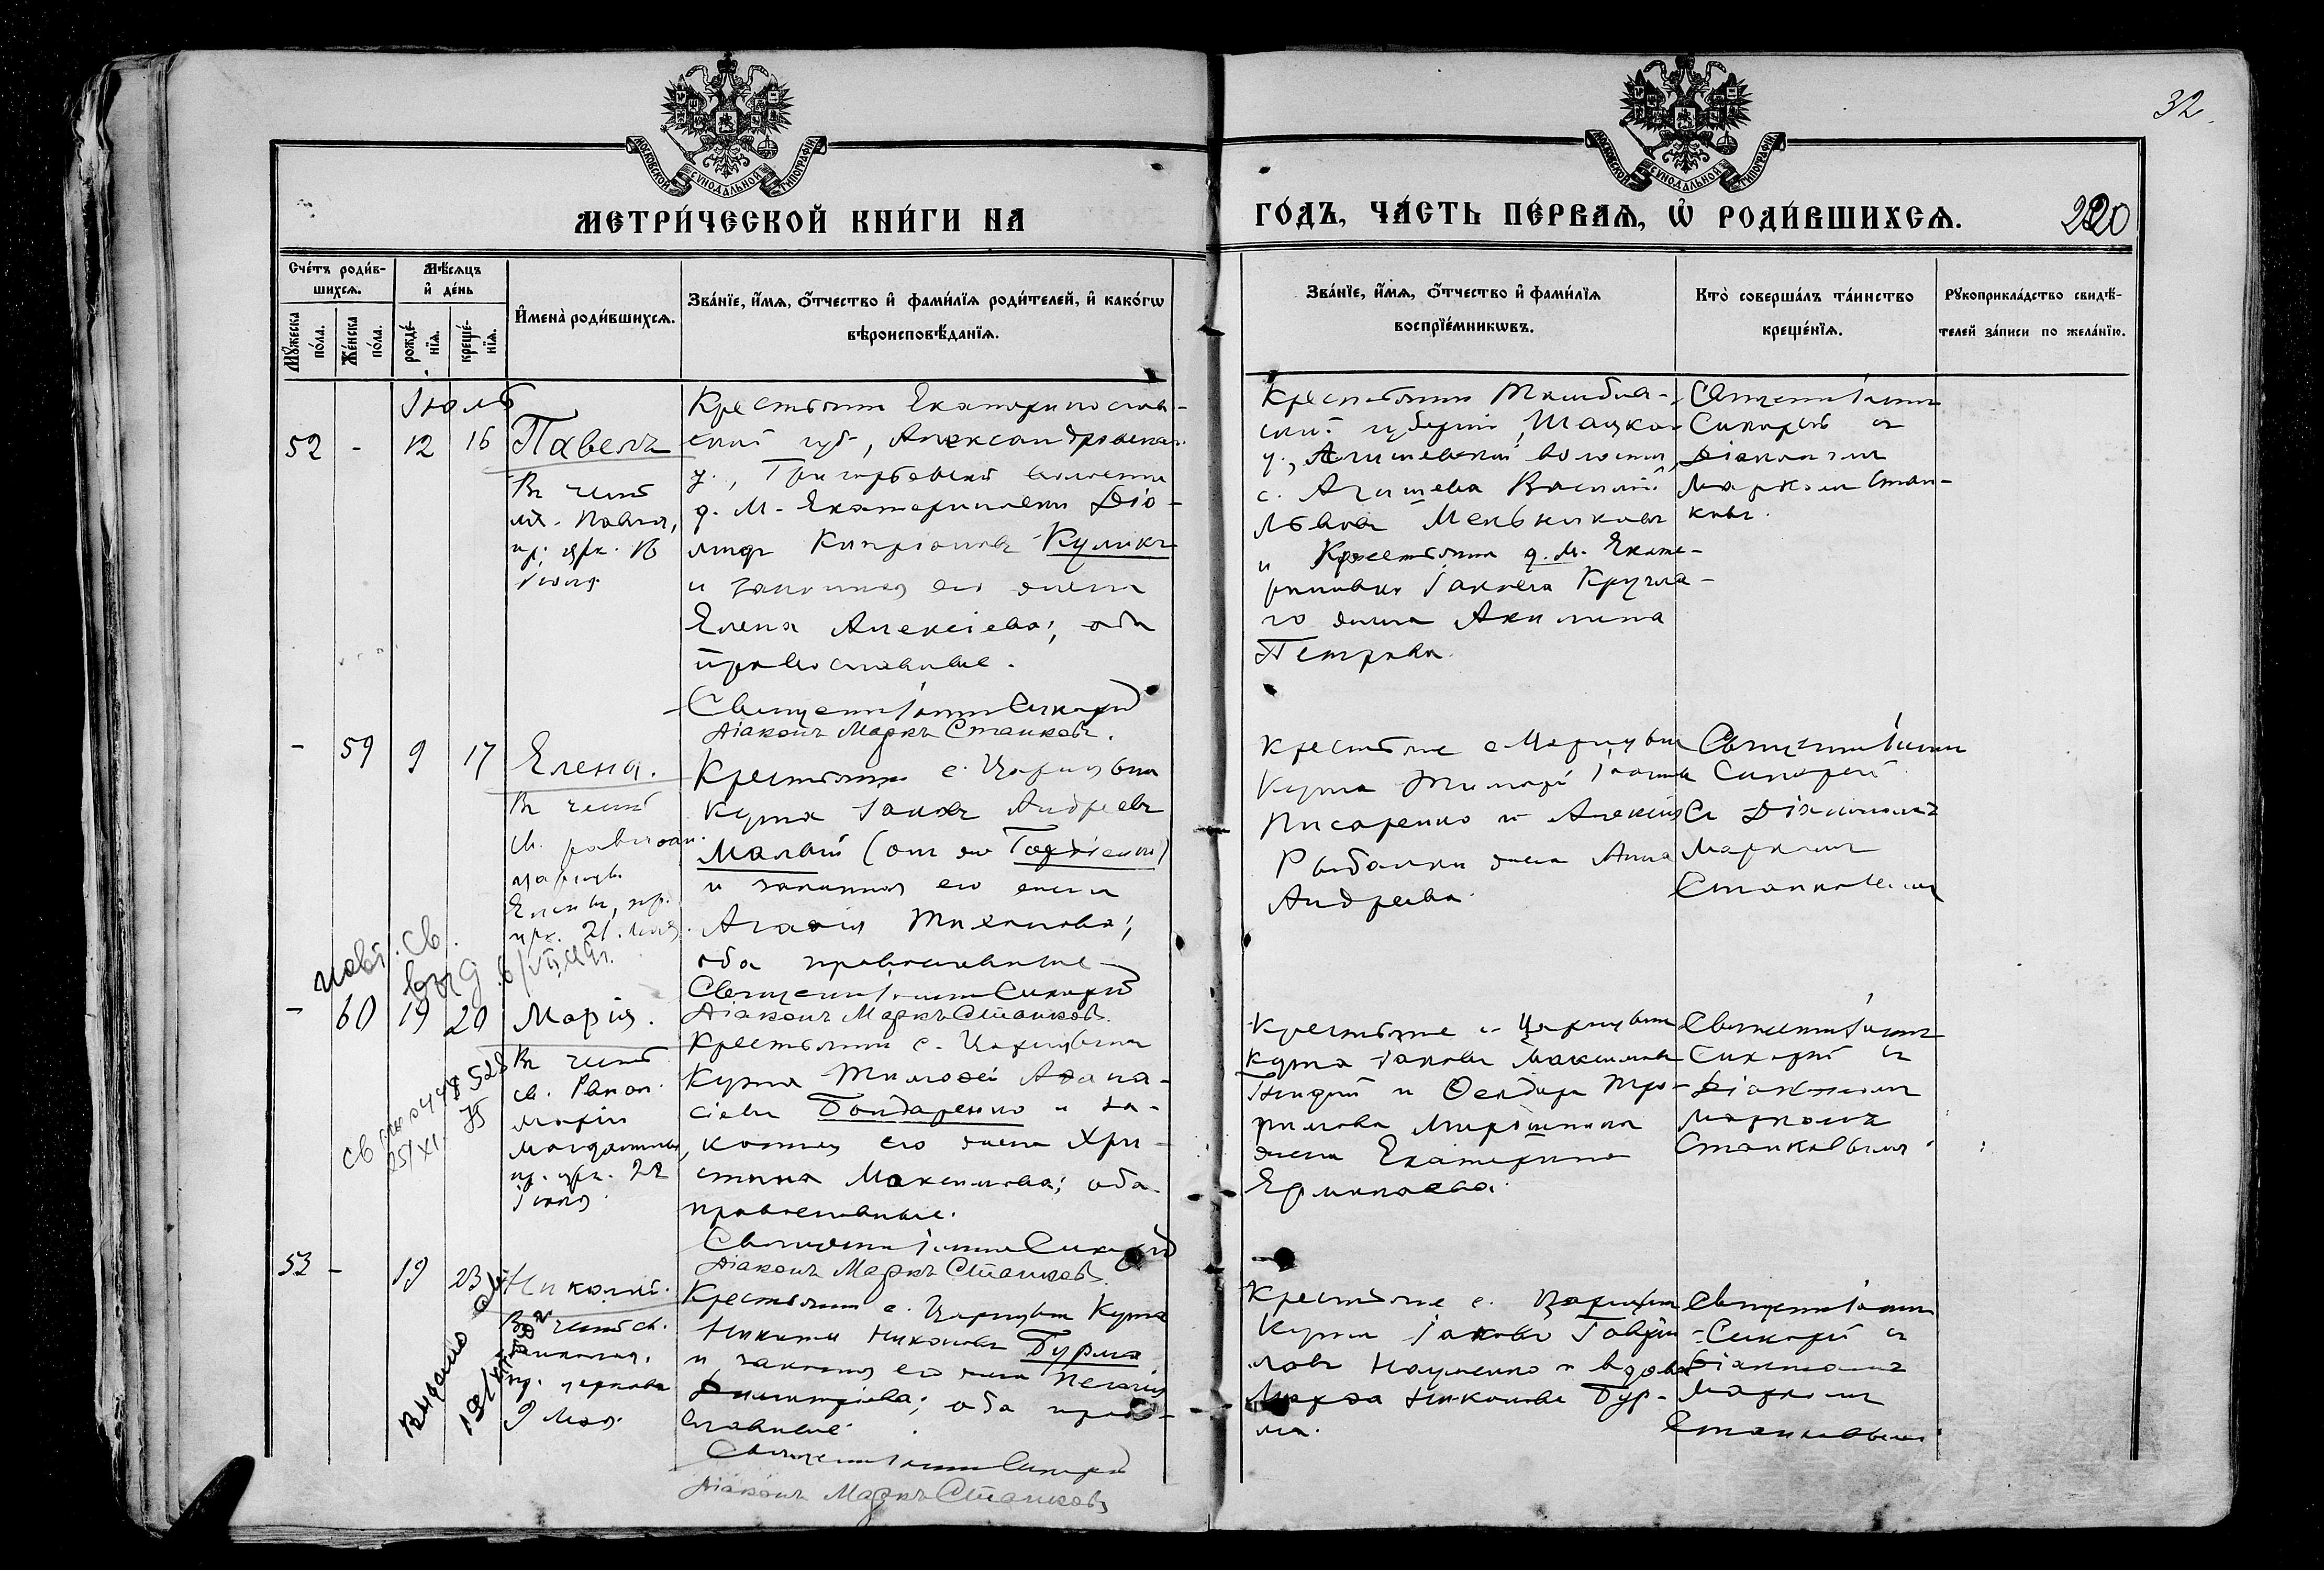 32.
МОСКОВСКОЙ СѴНОДАЛЬНОЙ ТИПОГРАФІИ
МОСКОВСКОЙ СѴНОДАЛЬНОЙ ТИПОГРАФІИ
МЕТРИ́ЧЕСКОЙ КНИ́ГИ НА
ГО́ДЪ, ЧА́СТЬ ПЕ́РВАЯ, Ѽ РОДИ́ВШИХСЯ.
220
Сче́тъ роди́в-
шихся.
Мѣ́сяцъ
и҆ де́нь
Мꙋ́жеска
по́ла.
Же́нска
по́ла.
рожде́-
нїя.
креще́-
нїя.
И҆мена̀ роди́вшихся.
Зва́нїе, и҆́мя, ѻ҆́тчество и҆ фами́лїя роди́телей, и҆ како́гѡ
вѣроисповѣ́данїя.
Зва́нїе, и҆́мя, ѻ҆́тчество и҆ фами́лїя
воспрїе́мникѡвъ.
Кто̀ соверша́лъ та́инство
креще́нїя.
Рꙋкоприкла́дство свидѣ́-
телей за́писи по жела́нїю.
Іюль
52 - 12 16 Павелъ
Въ честь
св. Павла,
пр. црк. 16
Іюля
Крестьянин Екатеринослав-
ской губ., Александровскаго
у., волости
д. М. Екатериновки Діо-
мид Кипріановъ Куликъ
и законная его жена
Елена Алексіева; оба
православные.
Священник Іоанн Сикорский
Діаконъ Маркъ Станковъ.
Крестьянин Тамбов-
ской губерніи, Шацкаго
у., волости,
с. Агишева Василій
Львовъ Мельниковъ
и Крестьянина д. М. Екате-
риновки Іакова Кругла-
го жена Акилина
Петрова.
Священник Іоанн
Сикорский с
Діаконом
Марком Стан-
ковым.
- 59 9 17 Елена.
Въ честь
св. равноап.
царицы
Елены, пр.
црк. 21 Мая.
Крестьянин с. Царицына
Кута Іаковъ Андреевъ
Малый (он же Гордіенко)
и законная его жена
Агафія Тихонова;
оба православные
Священник Іоанн Сикорский
Діаконъ Маркъ Станковъ.
Крестьяне с. Царицына
Кута Тимофей
Писаренко и Алексия
Рыбалки жена Анна
Андреева.
Священник Іоанн
Сикорский
с Діаконом
Марком
Станковым
повт. св.
выд.
- 60 19 20 Марія.
Въ честь
св. Равноап.
Маріи
Магдалины,
пр. црк. 22
Іюля
Крестьянин с. Царицына
Кута Тимофей Афана-
сіевъ Бондаренко и за-
конная его жена Хри-
стина Максимова; оба
православные.
Священник Іоанн Сикорский
Діаконъ Маркъ Станковъ.
Крестьяне с. Царицына
Кута Іаковъ Максимовъ
и Феодора Тро-
фимова
жена Екатерина
Священник Іоанн
Сикорский с
Діаконом
Марком
Станковым
53 - 19 23 Николай.
Въ честь св.
Николая.
пр. церковью
9 Мая.
Выдано
Крестьянин с. Царицына Кута
Никита Никоновъ Бурма
и законная его жена Пелагія
Димитріева; оба право-
славные.
Священник Іоанн Сикорский
Діаконъ Маркъ Станковъ
Крестьяне с. Царицына
Кута Іаковъ Гаври-
ловъ Науменко и вдова
Марфа Никонова Бур-
ма.
Священник Іоанн
Сикорский с
Діаконом
Марком
Станковым